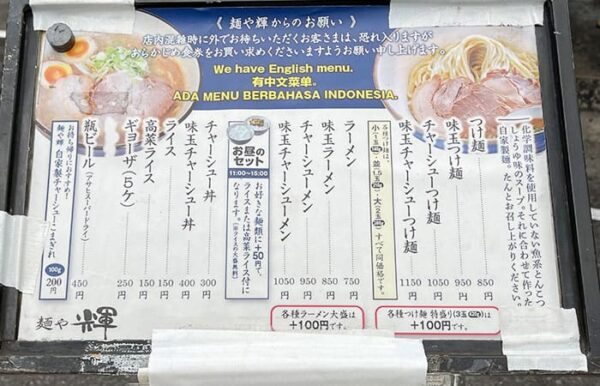 《 麺や輝からのお願い 》
店内混雑時に外でお待ちいただくお客さまは、恐れ入りますが
あらかじめ食券をお買い求めくださいますようお願い申し上げます。
We have English menu.
有中文菜单。
ADA MENU BERBAHASA INDONESIA.
化学調味料を使用していない魚系とんこつ
しょうゆ味のスープ。それに合わせて作った
自家製麺。たんとお召し上がりください。
つけ麺 850円
味玉つけ麺 950円
チャーシューつけ麺 1050円
味玉チャーシューつけ麺 1150円
各種つけ麺は、
小・並・大
すべて同価格です。
ラーメン 750円
味玉ラーメン 850円
チャーシューメン 950円
味玉チャーシューメン 1050円
お昼の
セット
11:00〜15:00
お好きな麺類に+50円で、
ライスまたは高菜ライス付に
なります。
チャーシュー丼 300円
味玉チャーシュー丼 400円
ライス 150円
高菜ライス 150円
ギョーザ(5ケ) 250円
瓶ビール(アサヒスーパードライ) 450円
お持ち帰りにおすすめ!
麺や輝 自家製チャーシューこまぎれ
100g
200円
麺や 輝
各種ラーメン大盛は
+100円です。
各種つけ麺 特盛り(3玉)は
+100円です。